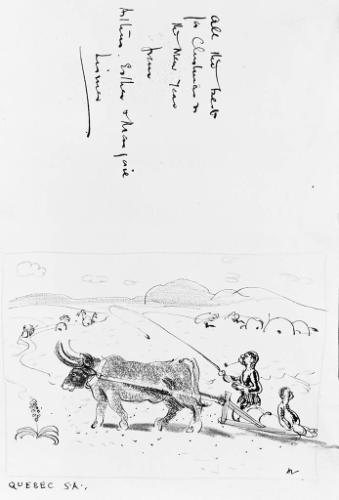 All the best
for Christmas &
the New Year
from
Arthur, Esther & Margarie
Lismer
QUEBEC S.A.,